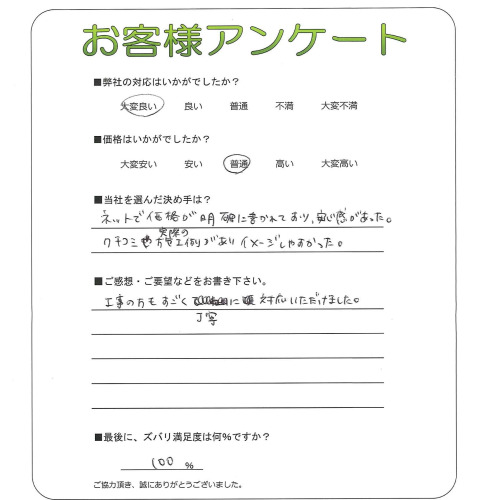 お客様アンケート
■弊社の対応はいかがでしたか?
大変良い 良い 普通 不満 大変不満
■価格はいかがでしたか?
大変安い 安い 普通 高い 大変高い
■当社を選んだ決め手は?
ネットで価格が明確に書かれており、安心感があった。
実際の
クチコミや施工例があり イメージしやすかった。
■ご感想・ご要望などをお書き下さい。
工事の方もすごく に 対応いただけました。
丁寧
■最後に、ズバリ満足度は何%ですか?
100 %
ご協力頂き、誠にありがとうございました。